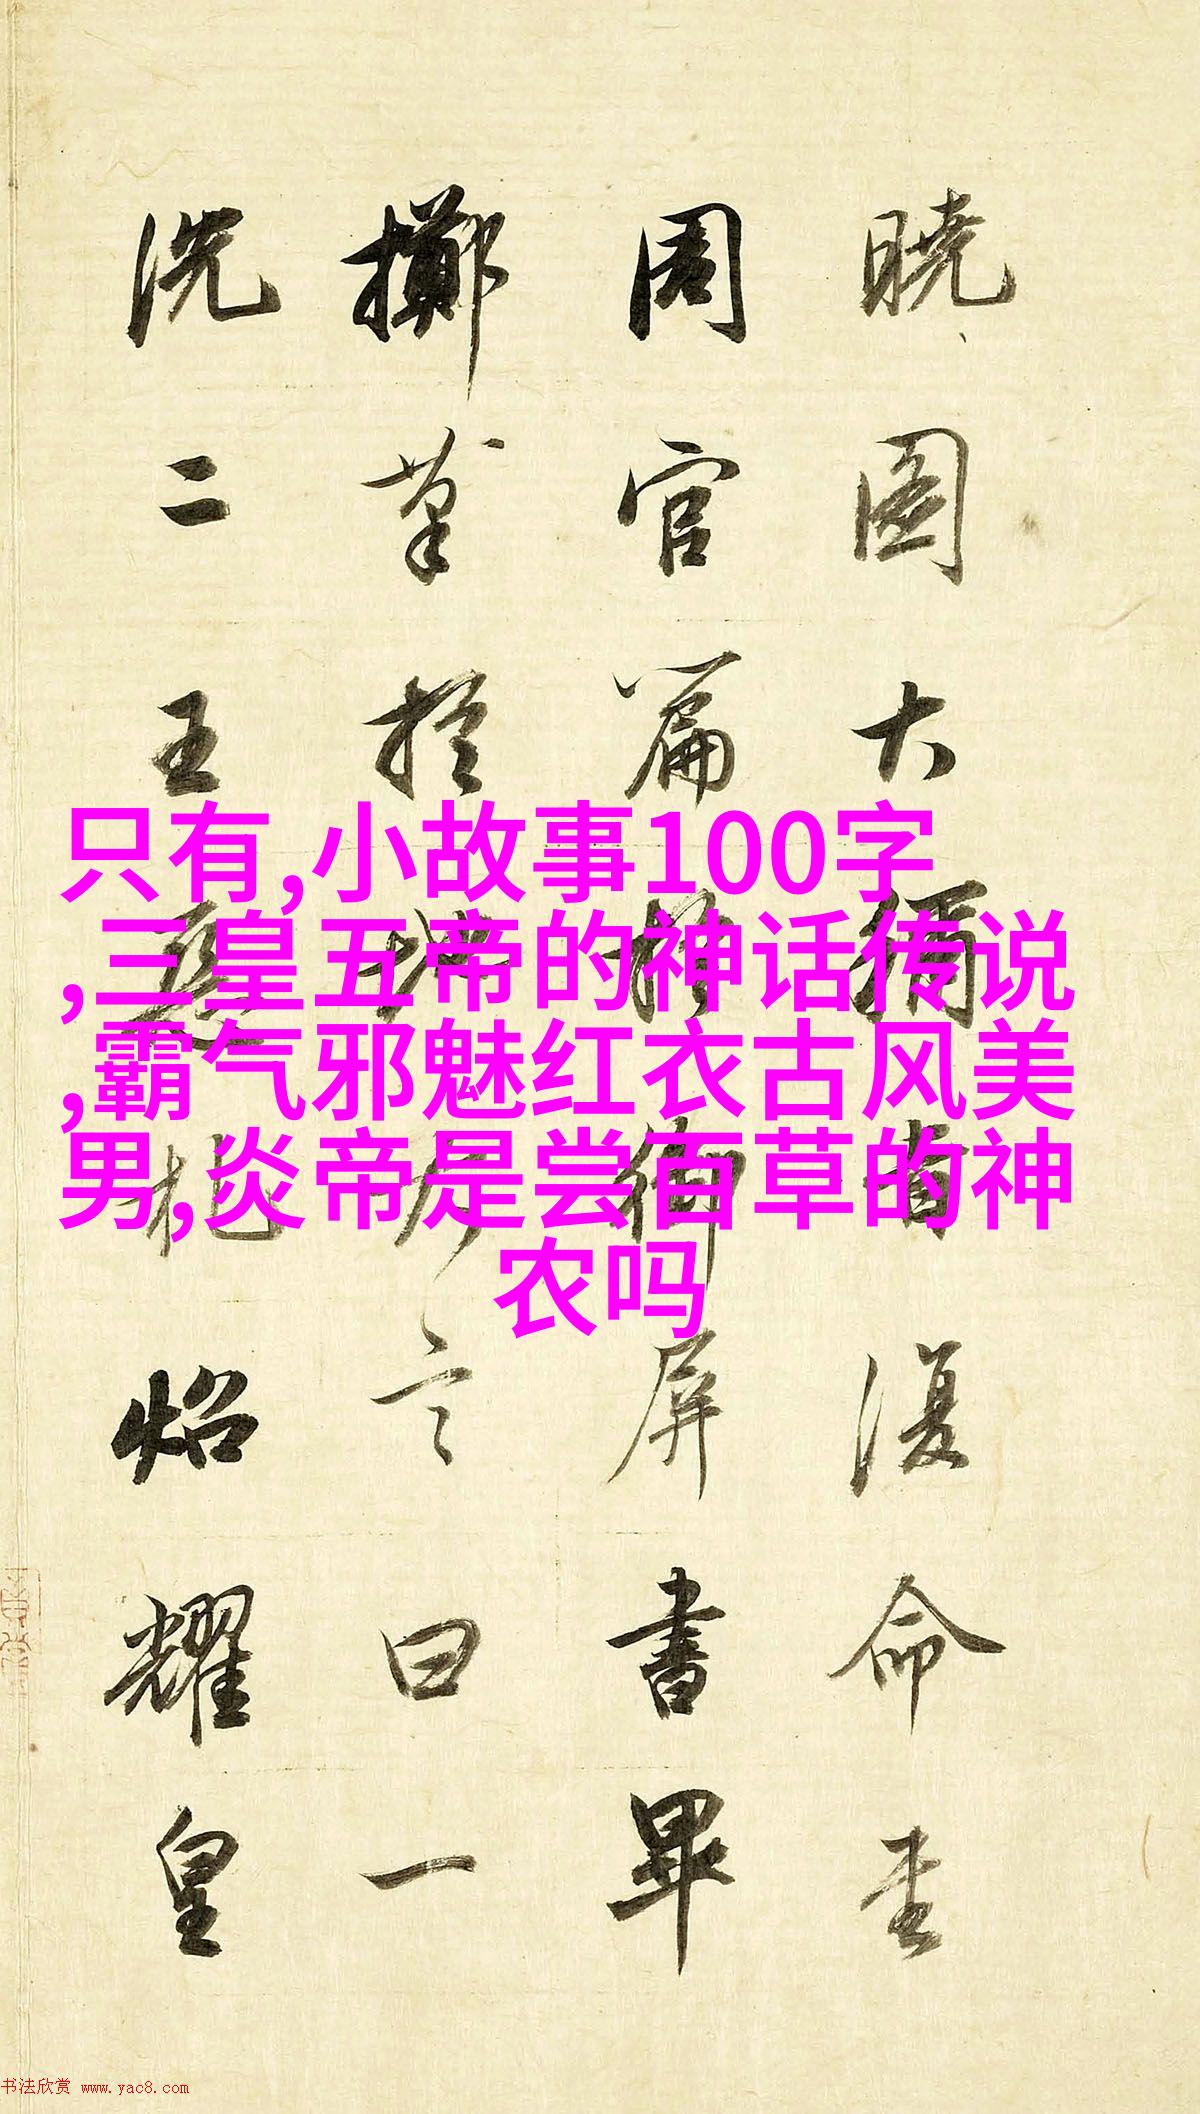 曉圖大復命
周官篇於御屏書畢
擲筆於地大言曰一
洗二王惡札炤耀皇
只有,小故事100字
,三皇五帝的神话传说
,霸气邪魅红衣古风美
男,炎帝是尝百草的神
农吗
书法欣赏 www.yac8.com